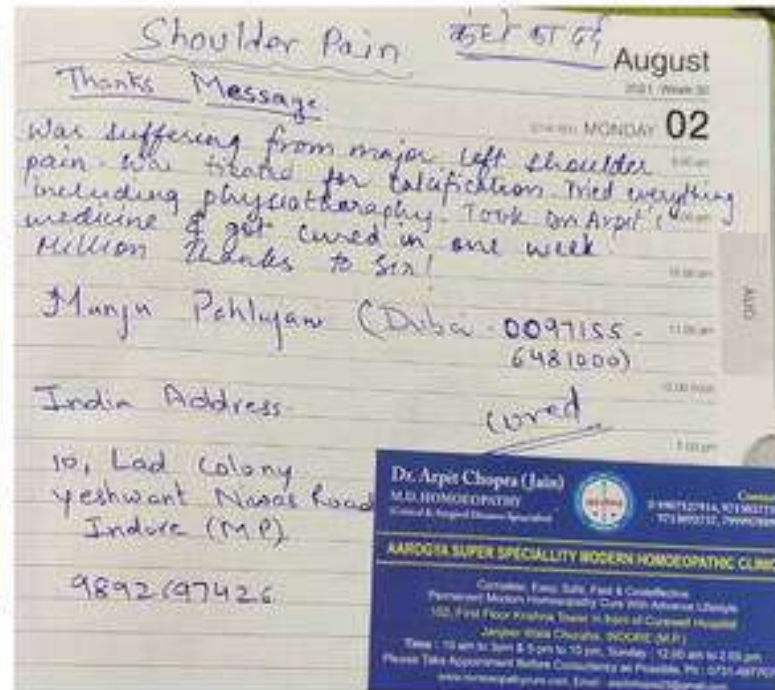 Shoulder Pain
कंधे का दर्द
August
2021 Week 30
MONDAY 02
Thanks Message
Was suffering from major left shoulder
pain. Was treated for calcification. Tried everything
including physiotharaphy. Took Dr Arpit's
medicine & got cured in one week.
Million Thanks to Sir!
Manju Pahlajani (Dubai - 0097155-
6481000)
11:00 am
12:00 noon
AUG
India Address
cured
10, Lad Colony
Yeshwant Niwas Road
Indore (M.P)
9892697426
Dr. Arpit Chopra (Jain)
M.D. HOMOEOPATHY
AAROGYA SUPER SPECIALLITY MODERN HOMOEOPATHIC CLINIC
Complete, Easy, Safe, Fast & Costeffective
Permanent Modern Homoeopathy Cure With Advance Lifestyle
102, First Floor Krishna Tower in front of Curewell Hospital
Janjeer Wala Choraha, INDORE (M.P.)
Time : 10 am to 5pm & 5 pm to 10 pm, Sunday : 12:00 am to 2:00 pm
Please Take Appointment Before Consultancy as Possible,